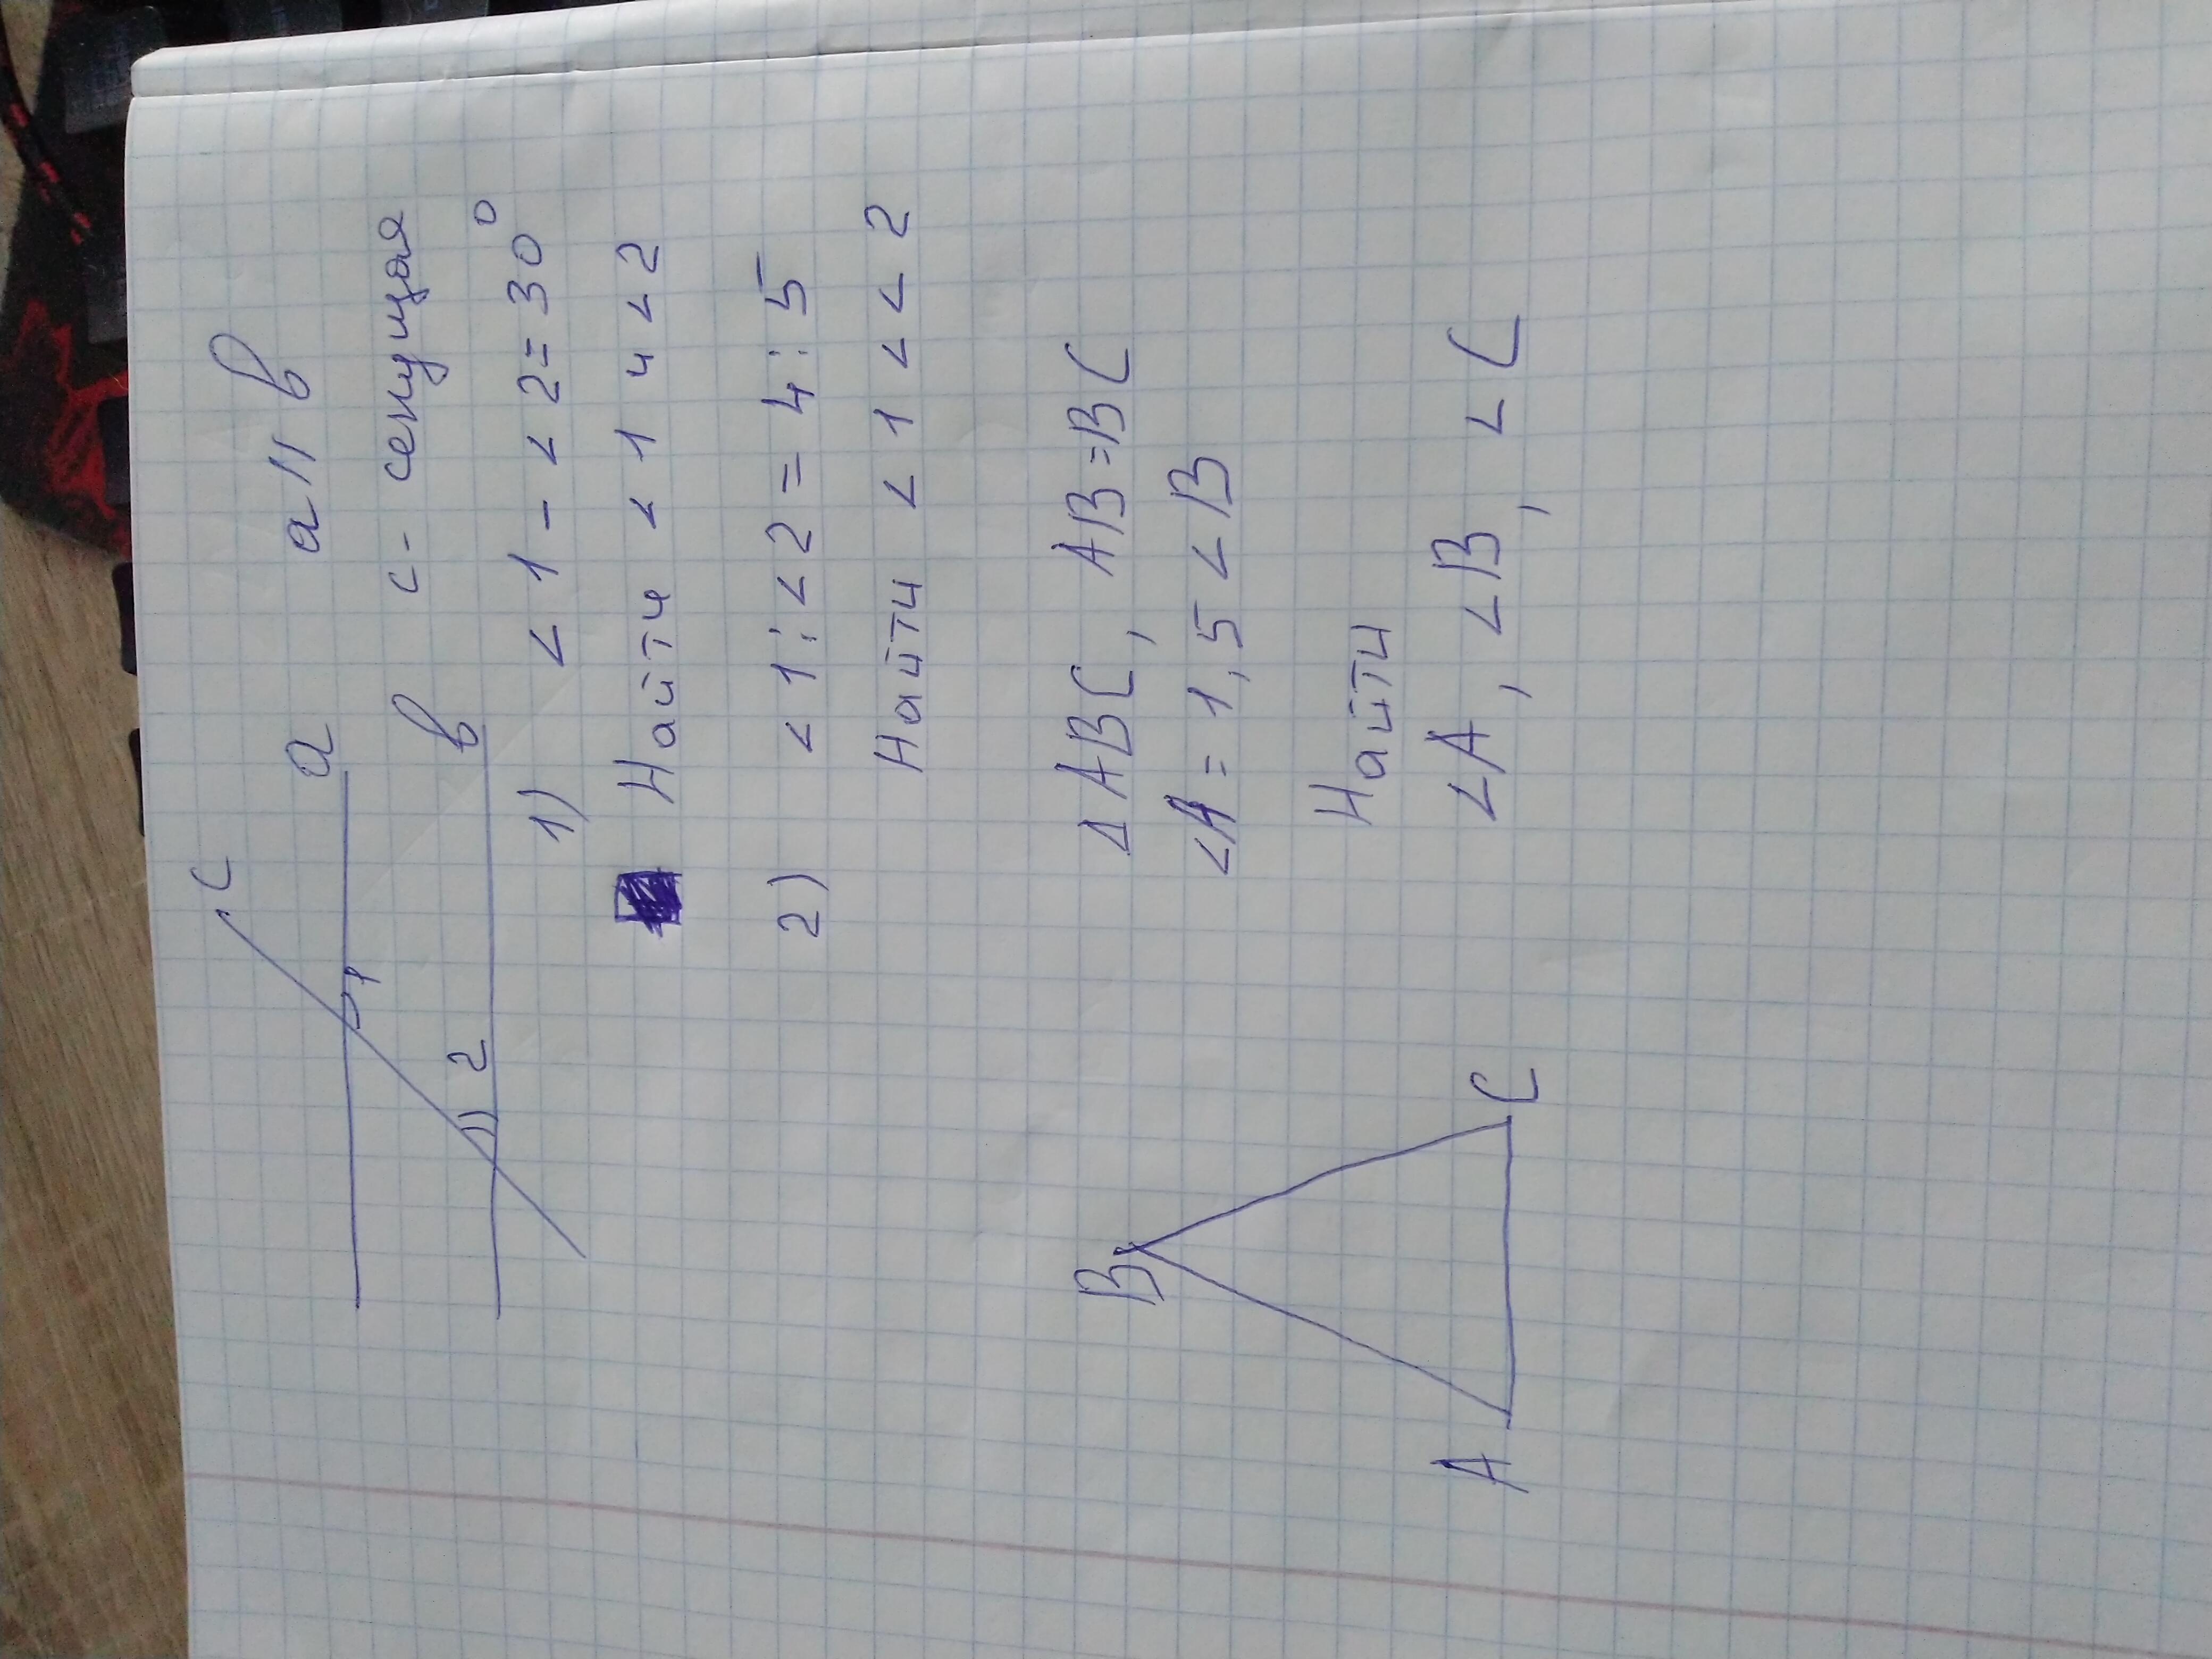 c
a
a || b
b
c - секущая
1
2
1) < 1 - < 2 = 30°
Найти < 1 и < 2
2) < 1 : < 2 = 4 : 5
Найти < 1 < < 2
B
A
C
Δ ABC, AB = BC
< A = 1,5 < B
Найти
< A, < B, < C